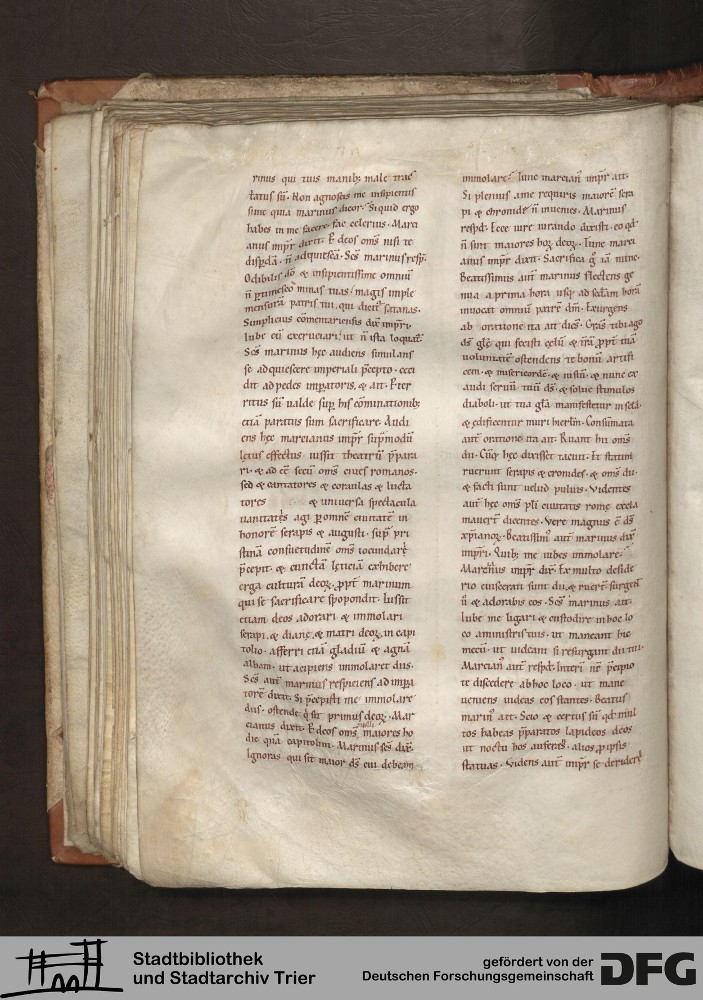 rinus qui tuis manib; male trac
tatus sū. Non agnoscis me insipientis
sime quia marinus dicor. Si quid ergo
habes in me facere. fac celerius. Marci
anus impr̄ dixit. P̄ deos om̄s nisi te
disp̄dā. n̄ adquiescā. Sc̄s marinus resp̄.
Odibilis dō & insipientissime omniū
n̄ p̄timesco minas tuas. magis imple
mensurā patris tui. qui dicit̄ satanas.
Simplicius cōmentariensis dix̄ imp̄ri.
Iube eū excruciari. ut n̄ ista loquat̄.
Sc̄s marinus hęc audiens simulans
se adquiescere imperiali p̄cepto. ceci
dit ad pedes imp̄atoris. & ait. P̄ter
ritus sū ualde sup̄ his cōminationib;
etiā paratus sum sacrificare. Audi
ens hęc marcianus impr̄ sup̄modū
lętus effectus. iussit theatrū p̄para
ri. & ad eē secū om̄s ciues romanos.
sed & cantatores & coraulas & lucta
tores & uniuersa spectacula
uanitatēs agi p̄ omnē ciuitatē in
honorē serapis & augusti. sup̄ pri
stinā consuetudinē om̄s iocundarē
p̄cepit. & cunctā lęticiā exhibere
erga culturā deoꝝ. p̄pt̄ marinum
qui se sacrificare spopondit. Iussit
etiam deos adorari & immolari
serapi. & dianę & matri deoꝝ in capi
tolio. afferri etiā gladiū & agnā
albam. ut accipiens immolaret diis.
Sc̄s aut̄ marinus respiciens ad imp̄a
torē dixit. Si p̄cepisti me immolare
diis. ostende q̄s sit primus deoꝝ. Mar
cianus dixit. P̄ deos om̄s nulli maiores ho
die quā capitolini. Marinus sc̄s dix̄.
Ignoras qui sit maior d̄s cui debeam
immolare. Tunc marcian᾽ impr̄ ait.
Si plenius a me requiris maiorē sera
pi & chronidē n̄ inuenies. Marinus
resp̄d. Ecce iure iurando dixisti. eo qd̄
n̄ sint maiores hoꝝ deoꝝ. Tunc marci
anus impr̄ dixit. Sacrifica g̊ iā nunc.
Beatissimus aut̄ marinus flectens ge
nua a prima hora usq; ad sextam horā
inuocat omniū patrē dm̄. Exurgens
ab oratione ita ait dices. Gr̄as tibi ago
d̄s glę qui fecisti cęlū & t̄rā p̄pt̄ tuā
uoluntatē ostendens te bonū artifi
cem. & misericordē. & iustū. & nunc ex
audi seruū tuū d̄s. & solue stimulos
diaboli. ut tua gl̄a manifestetur in scl̄a.
& ędificentur muri hierl̄m. Consūmata
aut̄ oratione ita ait. Ruant hii om̄s
dii. Cūq; hęc dixisset tacuit. Et statim
ruerunt serapis & cronides. & om̄s dii.
& facti sunt uelud puluis. Videntes
aut̄ hęc om̄s pl̄i ciuitatis romę excla
mauert̄ dicentes. Vere magnus ē d̄s
xp̄ianoꝝ. Beatissim᾽ aut̄ marinus dix̄
imp̄ri. Quib; me iubes immolare.
Marcinus impr̄ dix̄. Ex multo deside
rio euiscerati sunt dii. & ruerē. surgent
n̄ & adorabis eos. Sc̄s marinus ait.
Iube me ligari & custodire in hoc lo
co a ministris tuis. ut maneant hic
mecū. ut uideam si resurgant dii tui.
Marcian᾽ aut̄ resp̄d. Interī nē p̄cipio
te discedere ab hoc loco. ut mane
ueniens uideas eos stantes. Beatus
marin᾽ ait. Scio & certus sū qd̄ mul
tos habeas p̄paratos lapideos deos
ut noctu hos auferēs. alios p̄ ipsis
statuas. Videns aut̄ impr̄ se deriderē
Stadtbibliothek
und Stadtarchiv Trier
gefördert von der
Deutschen Forschungsgemeinschaft
DFG